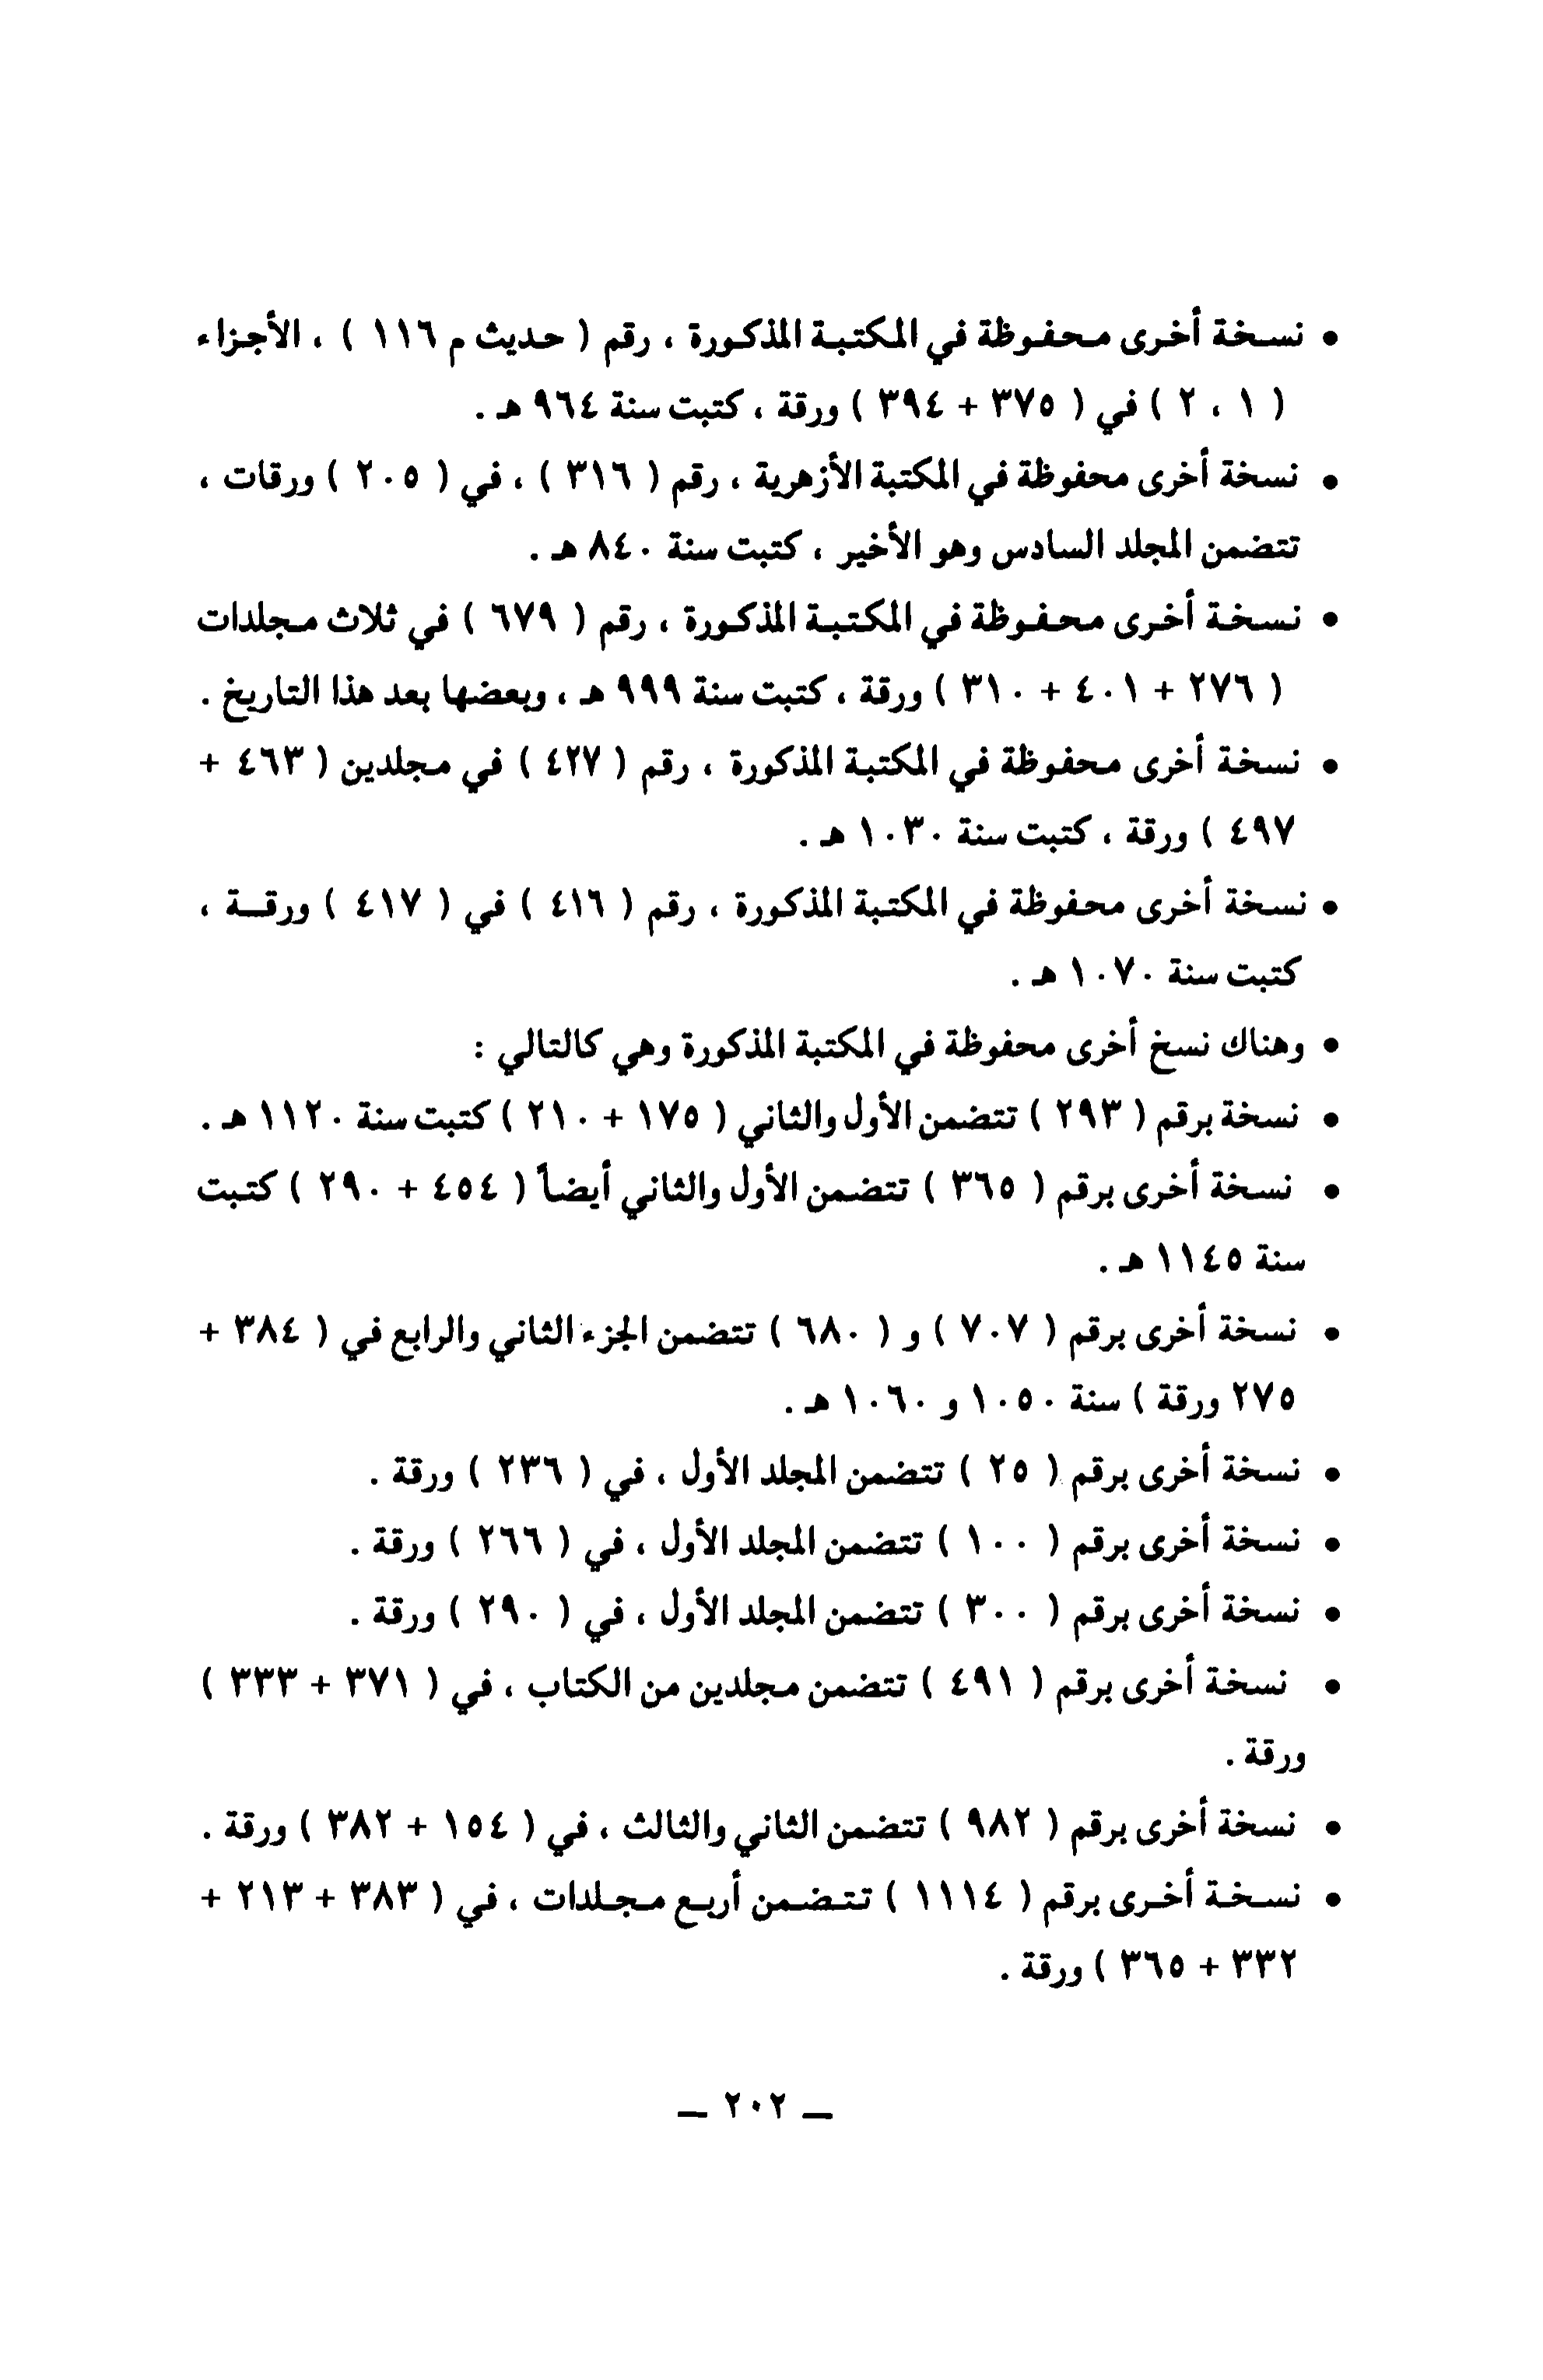 • نسخة أخرى محفوظة في المكتبة المذكورة ، رقم ( حديث م ١١٦ ) ، الأجزاء
( ١ ، ٢ ) في ( ٣٧٥ + ٣٩٤ ) ورقة ، كتبت سنة ٩٦٤ هـ .
• نسخة أخرى محفوظة في المكتبة الأزهرية ، رقم ( ٣١٦ ) ، في ( ٢٠٥ ) ورقات ،
تتضمن المجلد السادس وهو الأخير ، كتبت سنة ٨٤٠ هـ .
• نسخة أخرى محفوظة في المكتبة المذكورة ، رقم ( ٦٧٩ ) في ثلاث مجلدات
( ٢٧٦ + ٤٠١ + ٣١٠ ) ورقة ، كتبت سنة ٩٩٩ هـ ، وبعضها بعد هذا التاريخ .
• نسخة أخرى محفوظة في المكتبة المذكورة ، رقم ( ٤٢٧ ) في مجلدين ( ٤٦٣ +
٤٩٧ ) ورقة ، كتبت سنة ١٠٣٠ هـ .
• نسخة أخرى محفوظة في المكتبة المذكورة ، رقم ( ٤١٦ ) في ( ٤١٧ ) ورقـة ،
كتبت سنة ١٠٧٠ هـ .
• وهناك نسخ أخرى محفوظة في المكتبة المذكورة وهي كالتالي :
• نسخة برقم ( ٢٩٣ ) تتضمن الأول والثاني ( ١٧٥ + ٢١٠ ) كتبت سنة ١١٢٠ هـ .
• نسخة أخرى برقم ( ٣٦٥ ) تتضمن الأول والثاني أيضاً ( ٤٥٤ + ٢٩٠ ) كتبت
سنة ١١٤٥ هـ .
• نسخة أخرى برقم ( ٧٠٧ ) و ( ٦٨٠ ) تتضمن الجزء الثاني والرابع في ( ٣٨٤ +
٢٧٥ ورقة ) سنة ١٠٥٠ و ١٠٦٠ هـ .
• نسخة أخرى برقم ( ٢٥ ) تتضمن المجلد الأول ، في ( ٢٣٦ ) ورقة .
• نسخة أخرى برقم ( ١٠٠ ) تتضمن المجلد الأول ، في ( ٢٦٦ ) ورقة .
• نسخة أخرى برقم ( ٣٠٠ ) تتضمن المجلد الأول ، في ( ٢٩٠ ) ورقة .
• نسخة أخرى برقم ( ٤٩١ ) تتضمن مجلدين من الكتاب ، في ( ٣٧١ + ٣٣٣ )
ورقة .
• نسخة أخرى برقم ( ٩٨٢ ) تتضمن الثاني والثالث ، في ( ١٥٤ + ٣٨٢ ) ورقة .
• نسخة أخرى برقم ( ١١١٤ ) تتضمن أربع مجلدات ، في ( ٣٨٣ + ٢١٣ +
٣٣٢ + ٣٦٥ ) ورقة .
ــ ٢٠٢ ــ